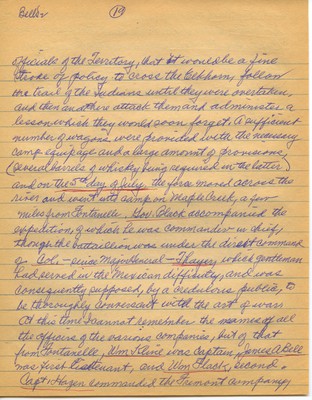 Beller
19
officials of the Territory, that it would be a fine
stroke of policy to cross the Elkhorn, follow
the trail of the Indians until they were overtaken,
and then and there attack them and administer a
lesson which they would soon forget. A sufficient
number of wagons were provided with the necessary
camp equipage and a large amount of provisions,
(several barrels of whisky being required in the latter)
and on the 5th day of July the force moved across the
river and went into camp on Maple Creek, a few
miles from Fontanelle. Gov. Black accompanied the
expedition, of which he was commander-in-chief,
though the battallion was under the direct command
of Col. - since Major General - Thayer, which gentleman
had served in the Mexican difficulty, and was
consequently supposed, by a credulous public, to
be thoroughly conversant with the art of war.
At this time I cannot remember the names of all
the officers of the various companies, but of that
from Fontanelle, Wm Kline was Captain, James A Bell
was first lieutenant, and Wm Flack, second.
Capt Hazen commanded the Fremont company,